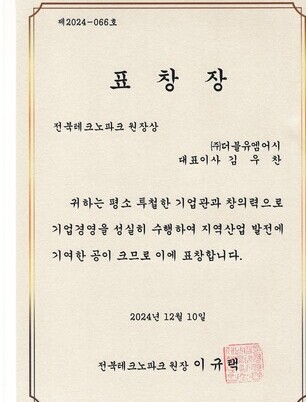 제2024-066호
표 창 장
전북테크노파크 원장상
㈜더블유엠어시
대표이사 김 우 찬
귀하는 평소 특철한 기업관과 창의력으로
기업경영을 성실히 수행하여 지역산업 발전에
기여한 공이 크므로 이에 표창합니다.
2024년 12월 10일
전북테크노파크 원장 이 규 택